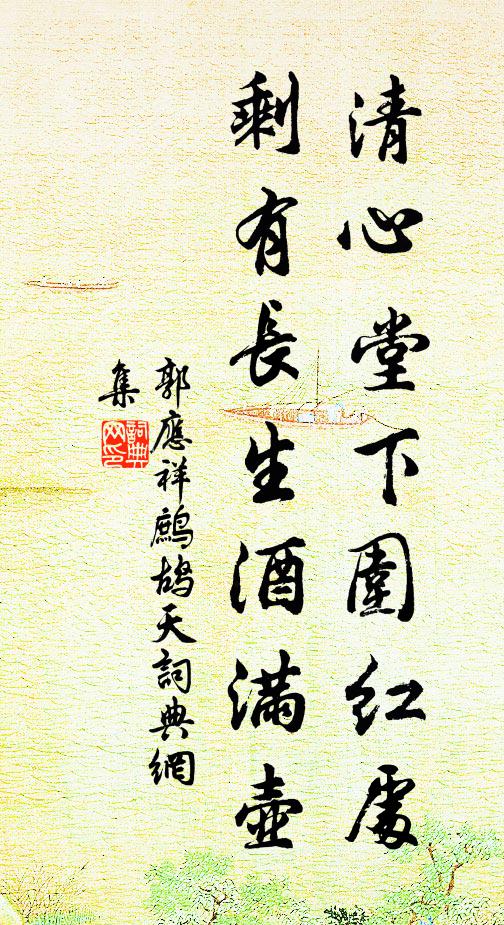 清心堂下圍紅處
剩有長生酒滿壺
郭應祥鷓鴣天詞典網
集
詞典網印